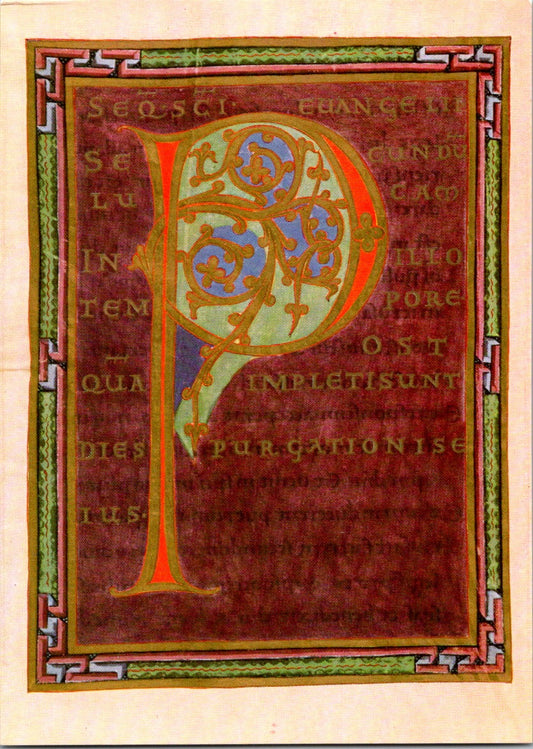 SEQ̅·SC̅I· EUANGELII
SE CUNDU̅
LU CAM
IN ILLO
TEM PORE·
P OST
QUA̅ IMPLETI SUNT
DIES PURGATIONIS E
IUS·